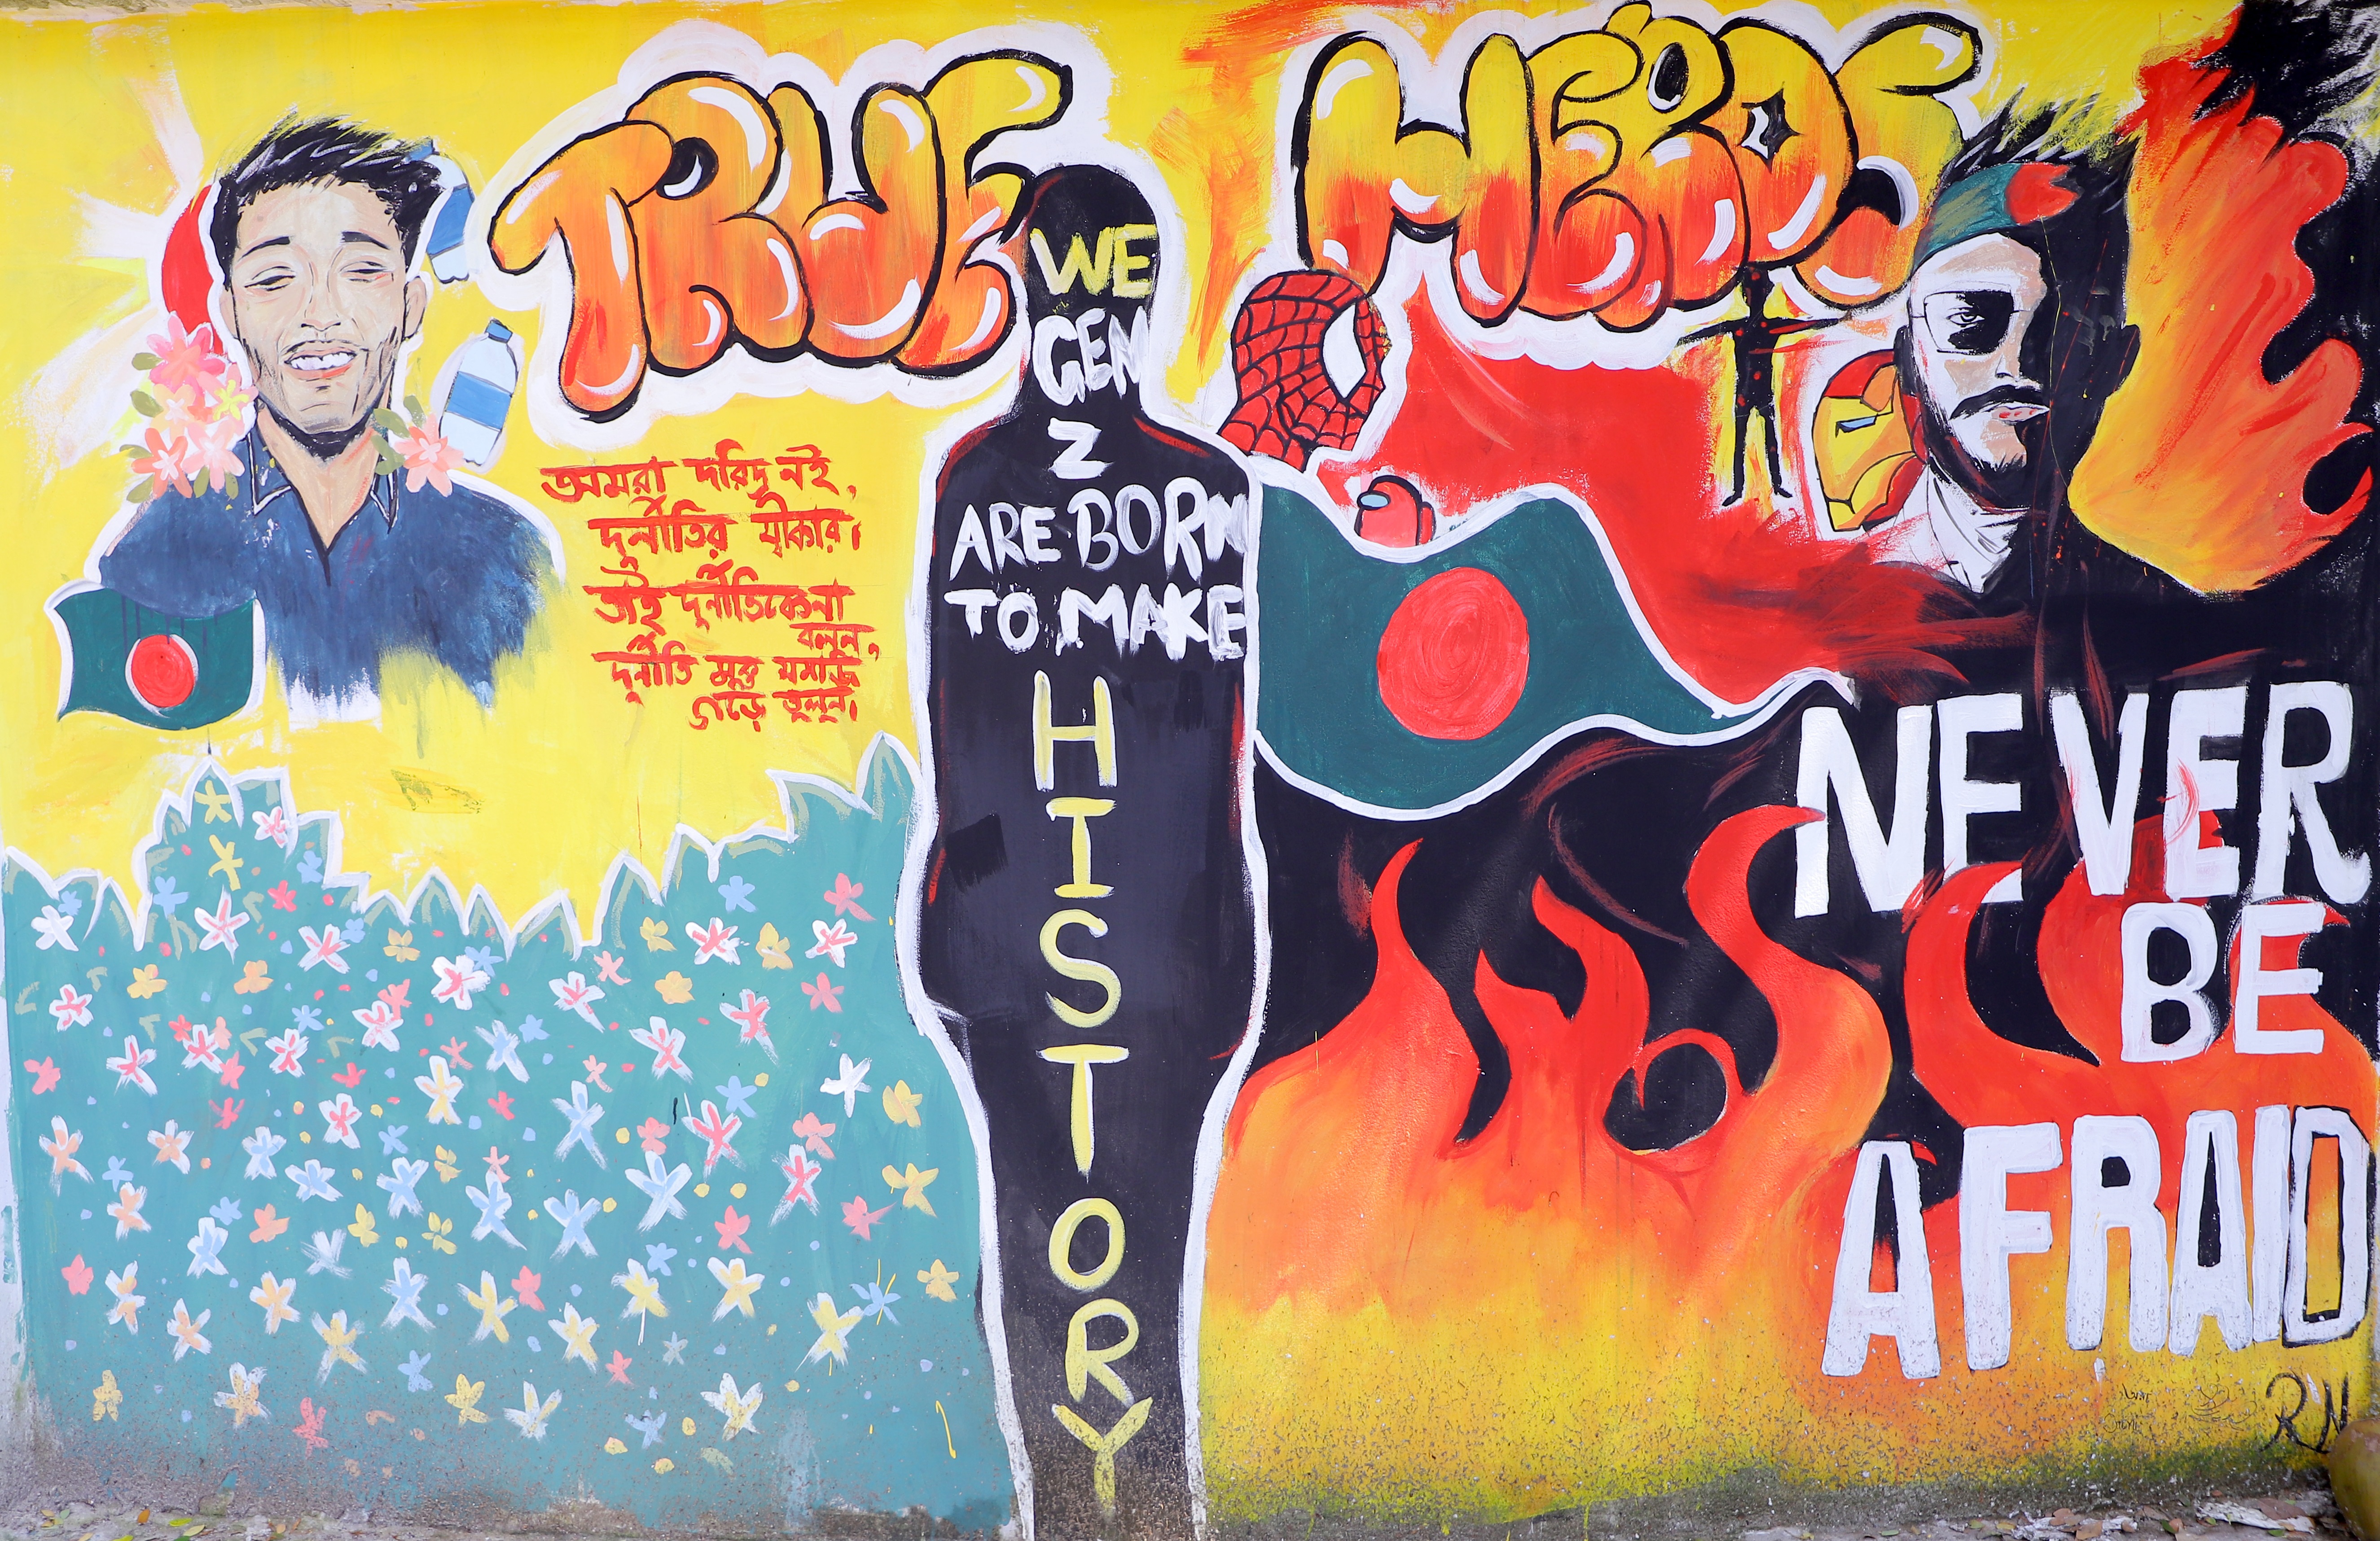 TRUE HEROS
আমরা দরিদ্র নই,
দুর্নীতির স্বীকার।
তাই দুর্নীতিকে না
বলুন,
দুর্নীতি মুক্ত সমাজ
গড়ে তুলুন।
WE
GEN
Z
ARE BORN
TO MAKE
HISTORY
NEVER
BE
AFRAID
RN